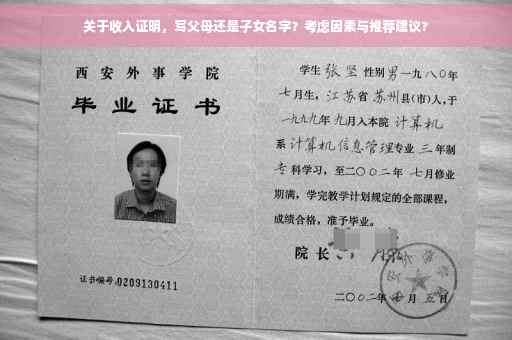 关于收入证明，写父母还是子女名字？考虑因素与推荐建议？
西安外事学院
毕业证书
证书编号:0209130411
学生 张坚 性别 男 一九八〇年
七月生，江苏省 苏州县(市)人，于
一九九九年 九月入本院 计算机
系 计算机信息管理专业 三 年制
专科学习，至二〇〇二年 七月修业
期满，学完教学计划规定的全部课程，
成绩合格，准予毕业。
院长
二〇〇二年 月 五日